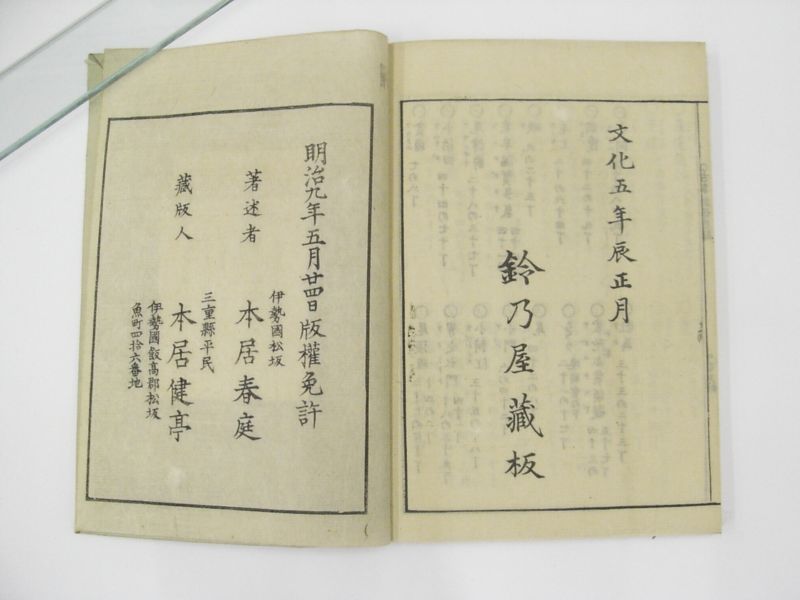 文化五年辰正月
鈴乃屋藏板
明治九年五月廿四日版權免許
伊勢國松坂
著述者 本居春庭
三重縣平民
藏版人 本居健亭
伊勢國飯高郡松坂
魚町四拾六番地